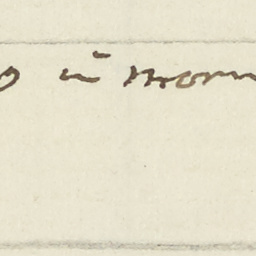 in morn